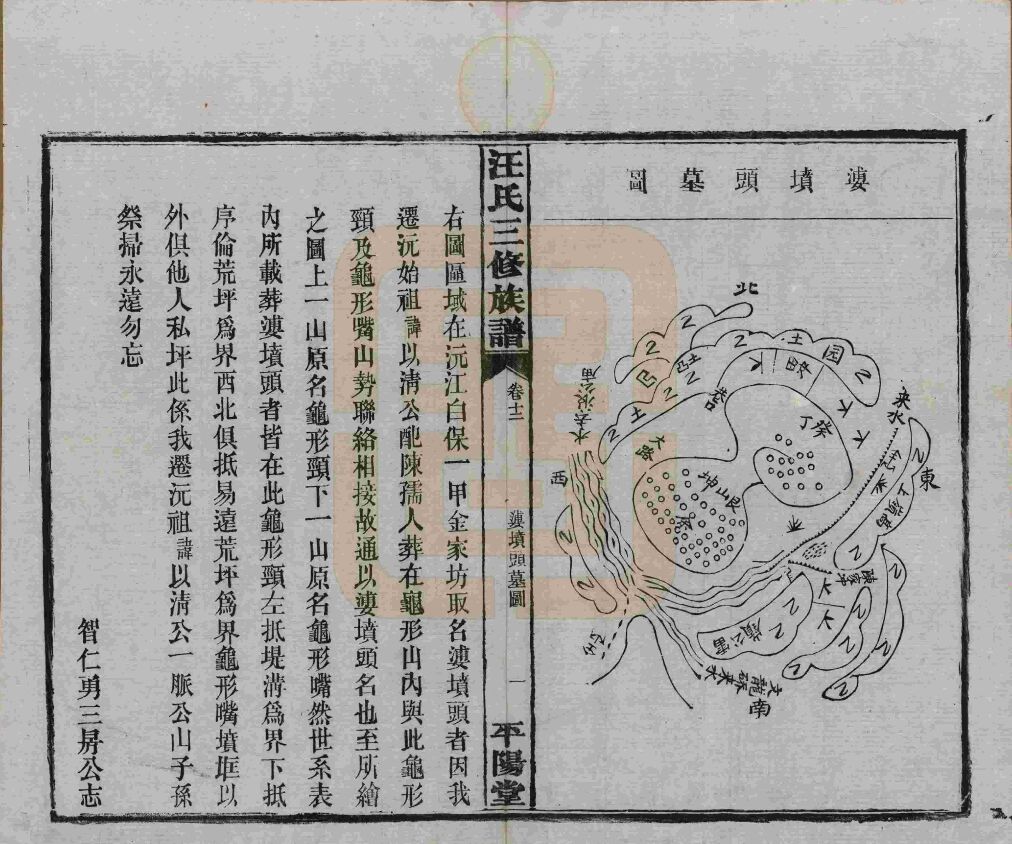 婆墳頭墓圖
北
東
南
西
园
土
土
大路
癸丁
艮山坤
來水
文龍碎來水
汪氏三修族譜
卷十二
婆墳頭墓圖
一
平陽堂
右圖區域在沅江白保一甲金家坊取名婆墳頭者因我
遷沅始祖諱以清公配陳孺人葬在龜形山內與此龜形
頸及龜形嘴山勢聯絡相接故通以婆墳頭名也至所繪
之圖上一山原名龜形頸下一山原名龜形嘴然世系表
內所載葬婆墳頭者皆在此龜形頸左抵堤溝爲界下抵
序倫荒坪爲界西北俱抵易遠荒坪爲界龜形嘴墳框以
外俱他人私坪此係我遷沅祖諱以清公一脈公山子孫
祭掃永遠勿忘
智仁勇三房公志